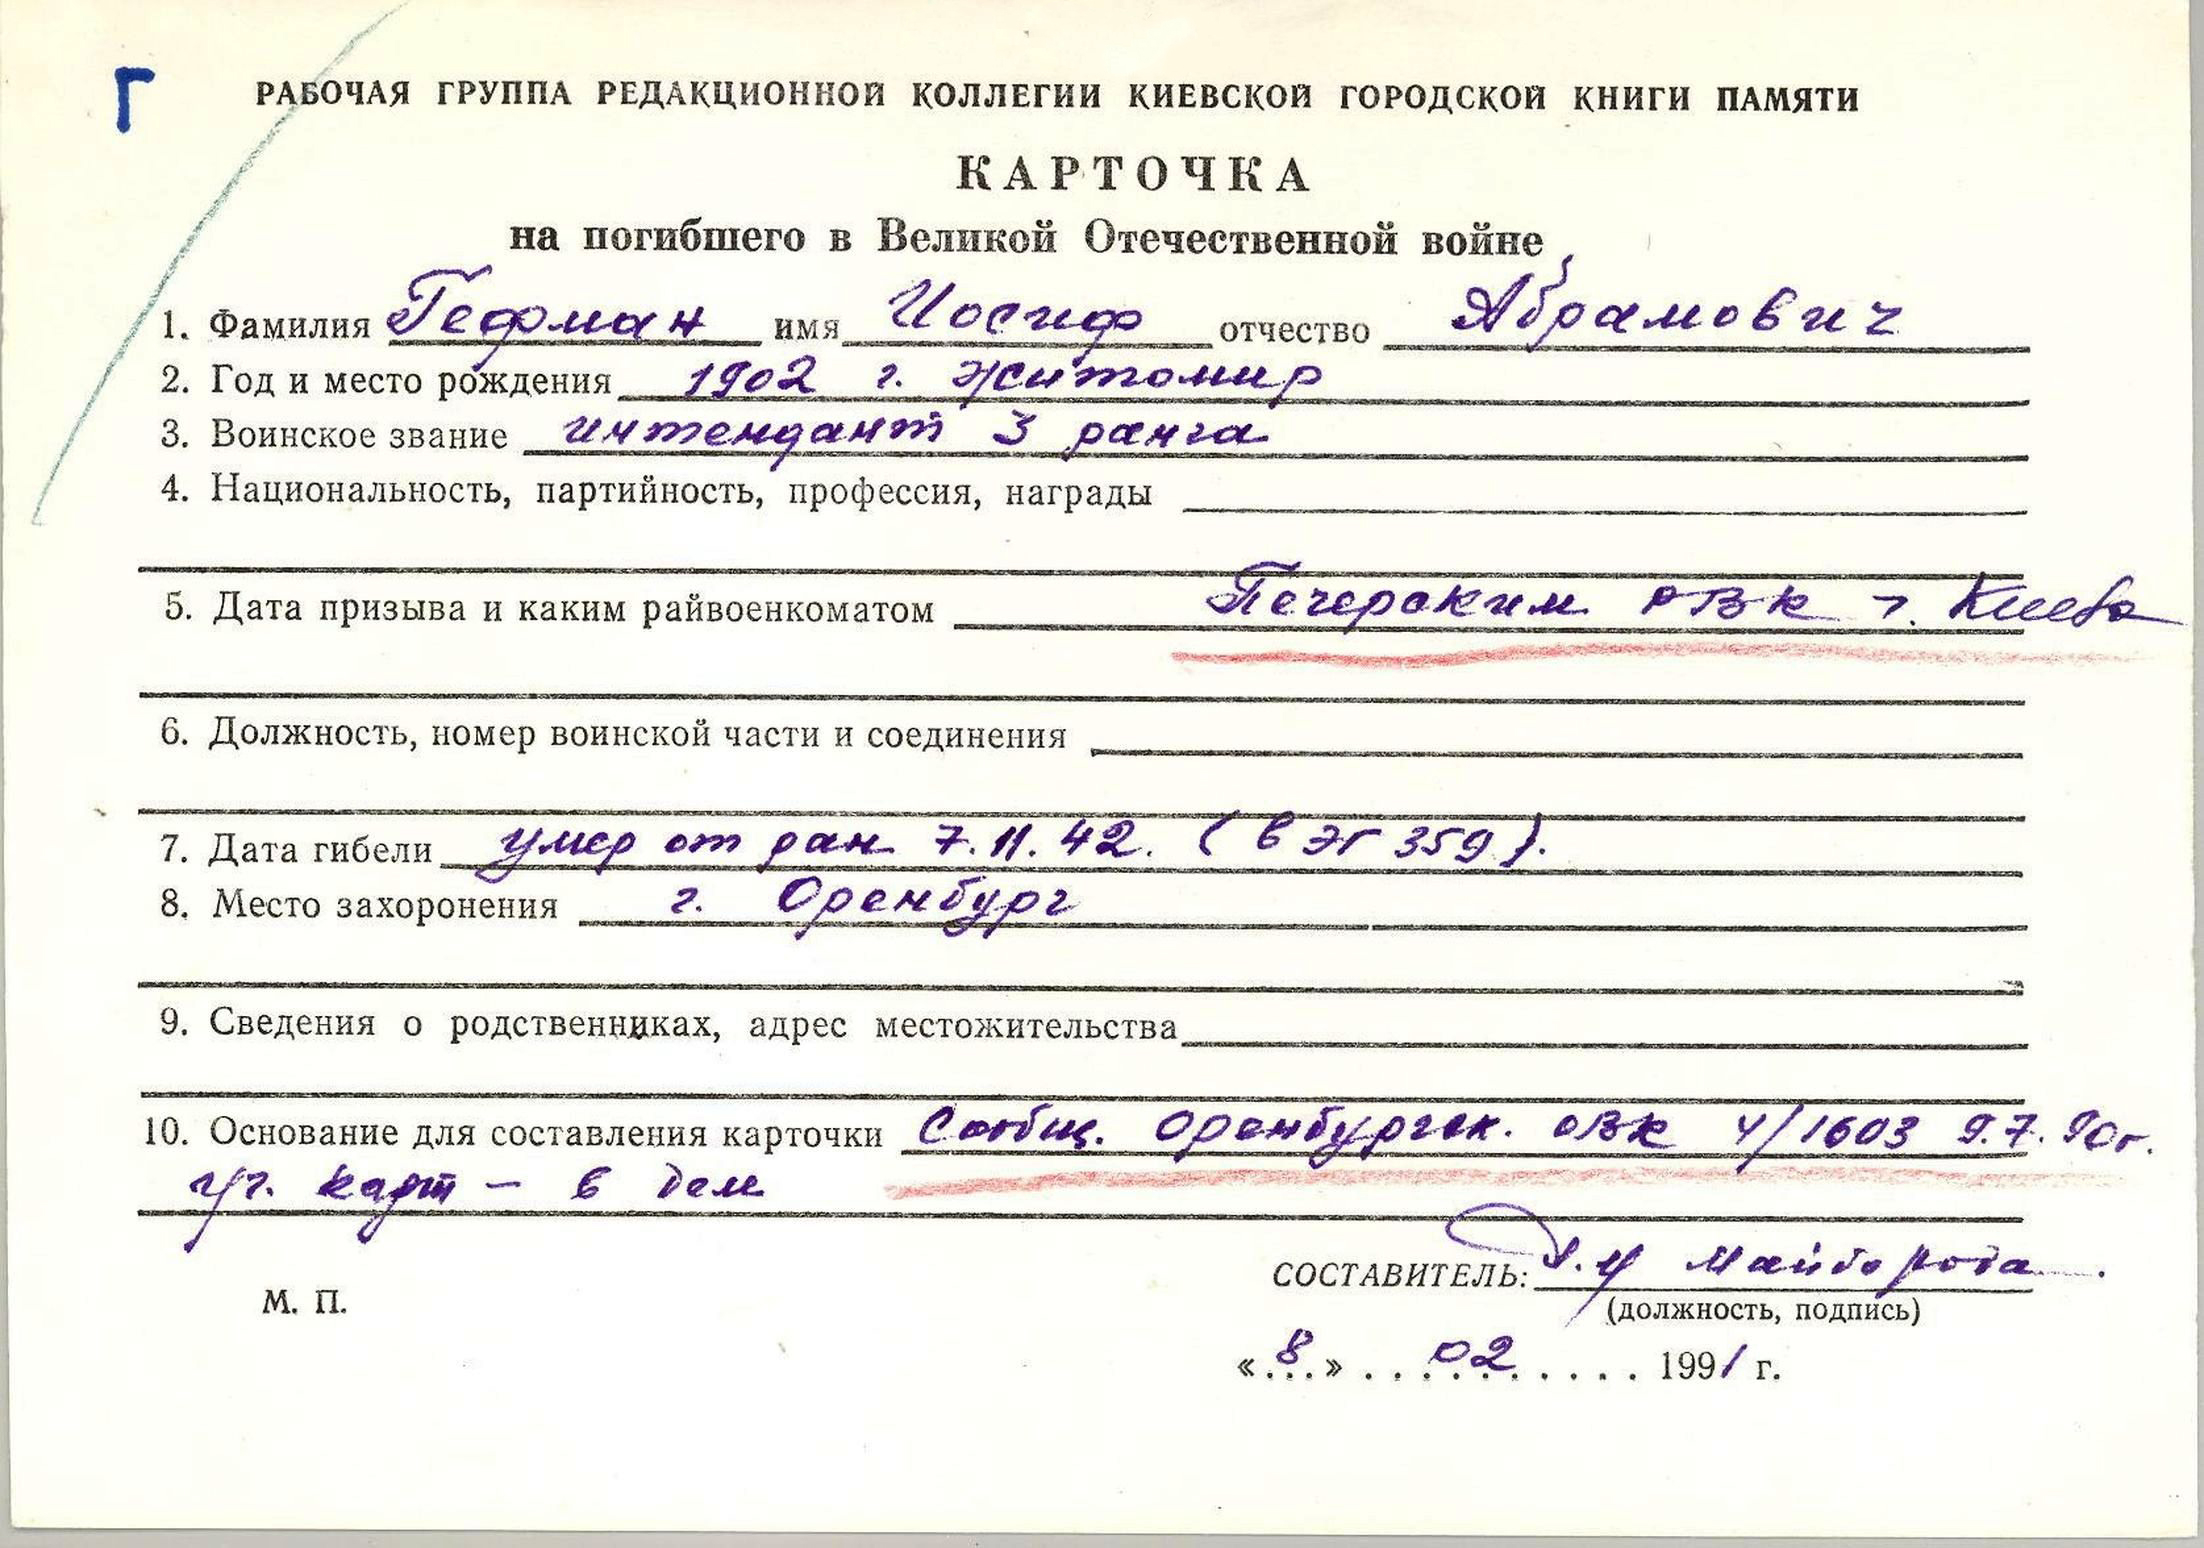 Г
РАБОЧАЯ ГРУППА РЕДАКЦИОННОЙ КОЛЛЕГИИ КИЕВСКОЙ ГОРОДСКОЙ КНИГИ ПАМЯТИ
КАРТОЧКА
на погибшего в Великой Отечественной войне
1. Фамилия Гефман имя Иосиф отчество Абрамович
2. Год и место рождения 1902 г. Житомир
3. Воинское звание интендант 3 ранга
4. Национальность, партийность, профессия, награды
5. Дата призыва и каким райвоенкоматом Печерским РВК г. Киева
6. Должность, номер воинской части и соединения
7. Дата гибели умер от ран 7.11.42. (в ЭГ 359).
8. Место захоронения г. Оренбург
9. Сведения о родственниках, адрес местожительства
10. Основание для составления карточки Сообщ. Оренбургск. ОВК 4/1603 9.7.90г.
карт – в деле
СОСТАВИТЕЛЬ: Майборода
М. П.
(должность, подпись)
«8» 02 1991 г.